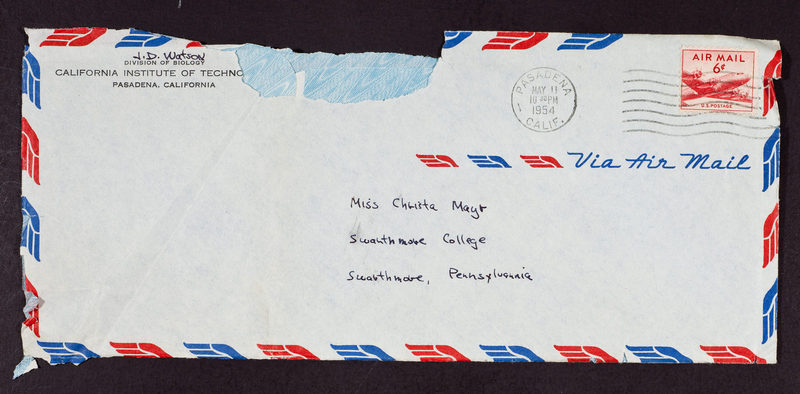 J.D. Watson
DIVISION OF BIOLOGY
CALIFORNIA INSTITUTE OF TECHNO
PASADENA, CALIFORNIA
PASADENA
CALIF.
MAY 11
10 30 PM
1954
AIR MAIL
6¢
U.S. POSTAGE
Via Air Mail
Miss Christa Mayr
Swarthmore College
Swarthmore, Pennsylvania